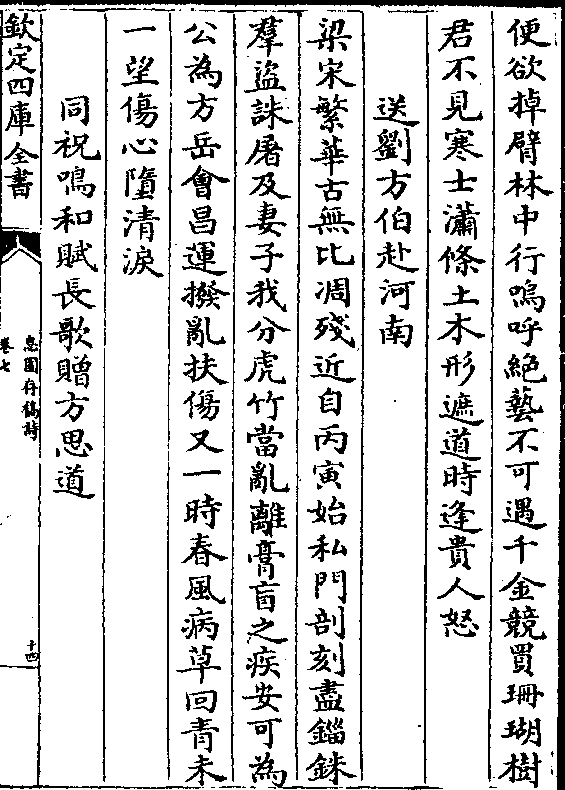 便欲掉臂林中行嗚呼絶藝不可遇千金競買珊瑚樹
君不見寒士瀟條土木形遮道時逢貴人怒
送劉方伯赴河南
梁宋繁華古無比凋殘近自丙寅始私門剖刻盡錙銖
羣盜誅屠及妻子我分虎竹當亂離膏盲之疾安可為
公為方岳會昌運撥亂扶傷又一時春風病草回青未
一望傷心墮清淚
同祝鳴和賦長歌贈方思道
欽定四庫全書
息園存稿詩
卷七
十四